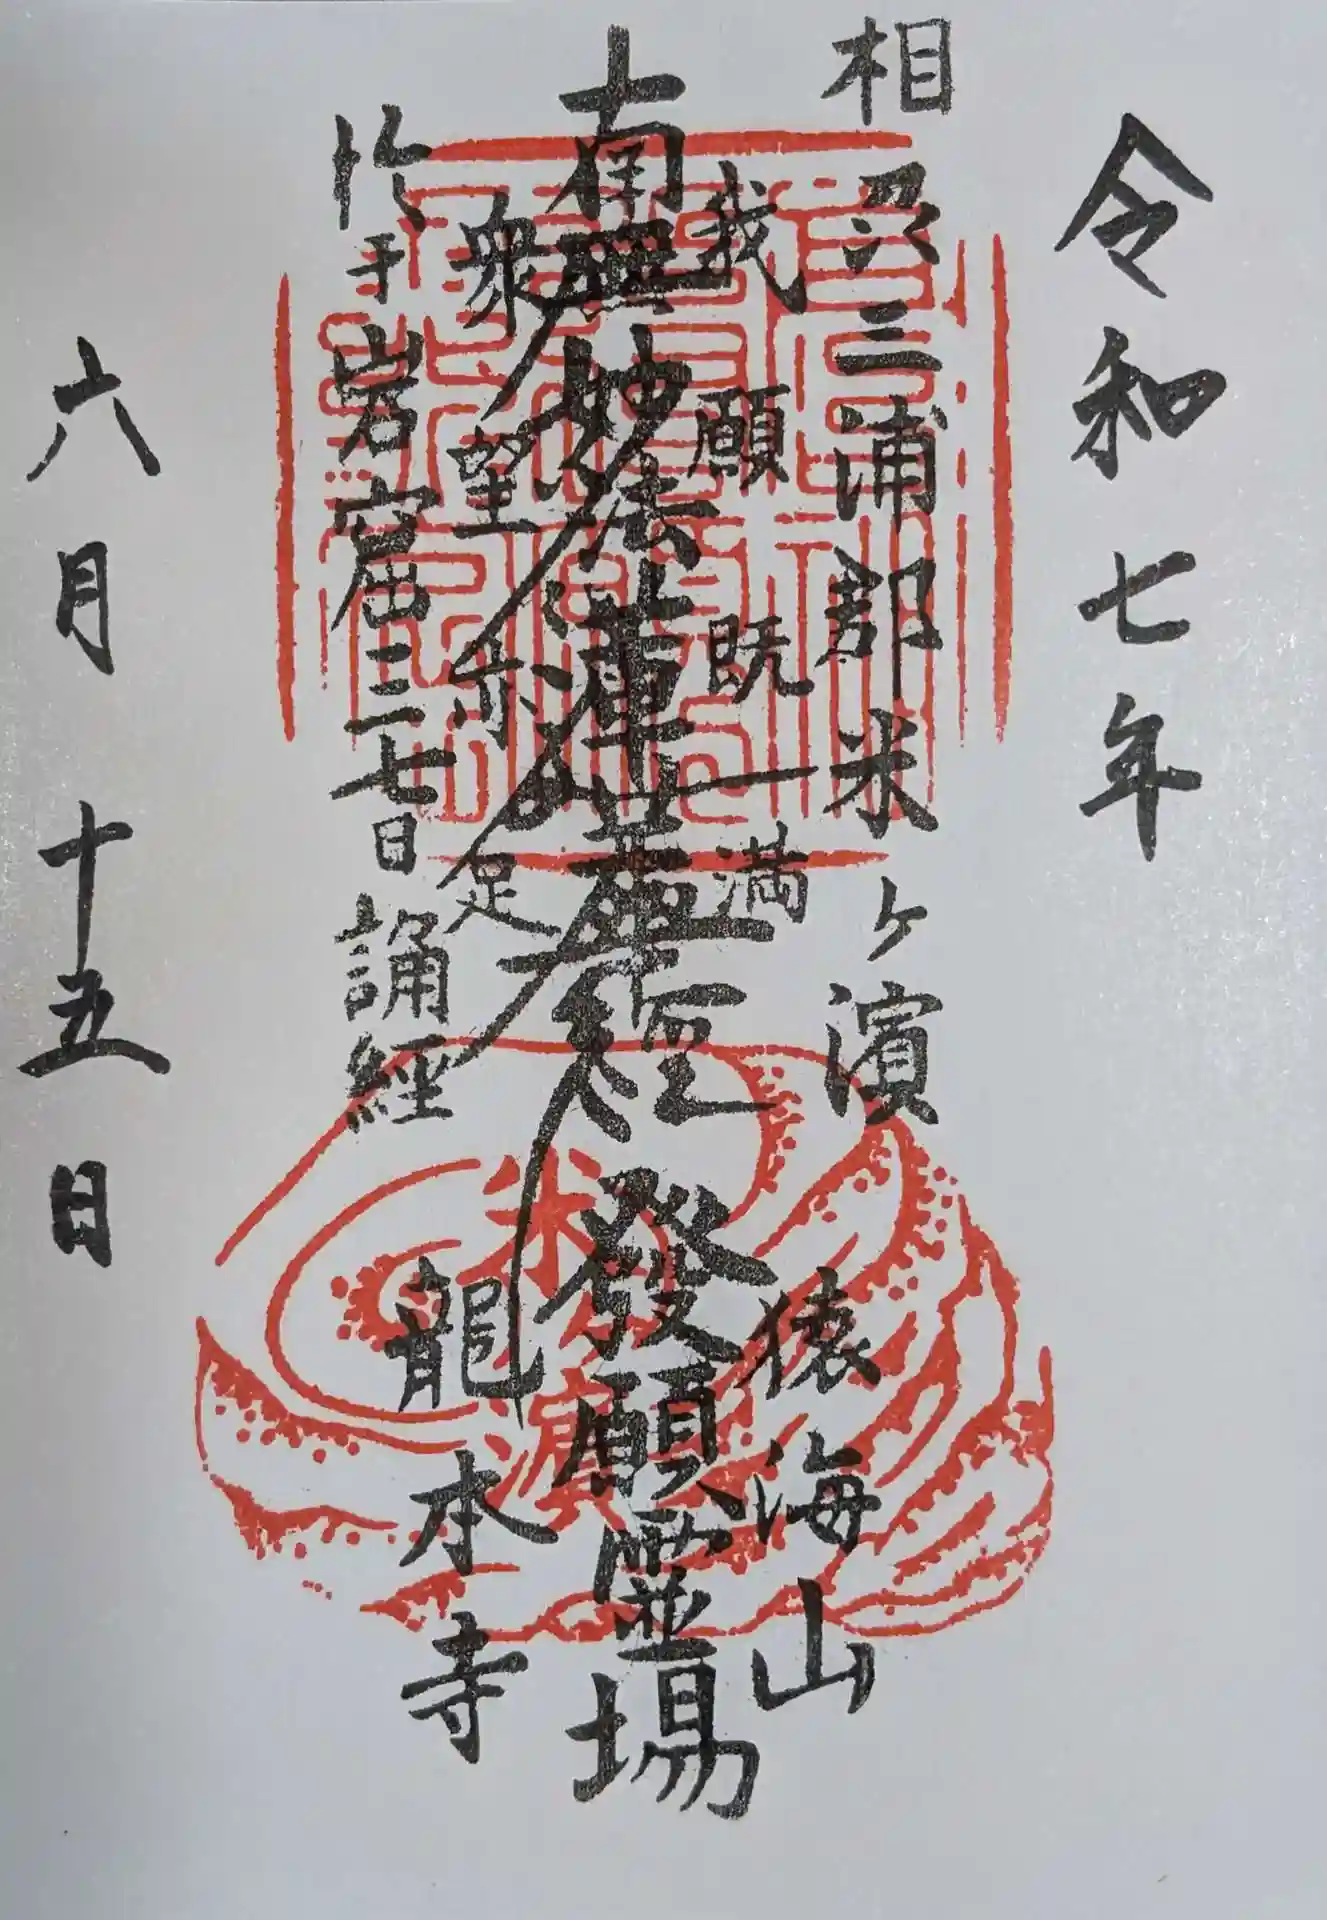 令和七年
相州三浦郡米ヶ濱
猿海山
我願既満
南無妙法蓮華経 發願霊場
衆望亦足
於岩窟三七日誦經
龍本寺
六月十五日
米濱